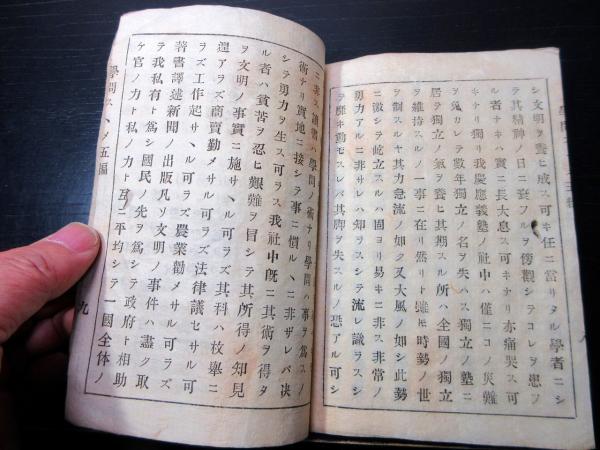 シ文明ヲ養ヒ成ス可キ任ニ當リタル學者ニシ
テ其精神ノ日ニ衰フルヲ傍觀シテコレヲ患フ
ル者ナキハ實ニ長大息ス可キナリ亦痛哭ス可
キナリ獨リ我慶應義塾ノ社中ハ僅ニコノ災難
ヲ免カレテ數年獨立ノ名ヲ失ハス獨立ノ塾ニ
居テ獨立ノ氣ヲ養ヒ其期スル所ハ全國ノ獨立
ヲ維持スルノ一事ニ在リ然リト雖𪜈時勢ノ世
ヲ制スルヤ其力急流ノ如ク又大風ノ如シ此勢
ニ激シテ屹立スルハ固ヨリ易キニ非ス非常ノ
勇力アルニ非サレハ知ラスシテ流レ識ラスシ
テ靡キ動モスレバ其脚ヲ失スルノ恐アル可シ
學問ス丶メ五編
ニ非ス讀書ハ學問ノ術ナリ學問ハ事ヲ爲スノ
術ナリ實地ニ接シテ事ニ慣ル丶ニ非ザレバ决
シテ勇力ヲ生ス可ラス我社中既ニ其術ヲ得タ
ル者ハ貧苦ヲ忍ヒ艱難ヲ冒シテ其所得ノ知見
ヲ文明ノ事實ニ施サ丶ル可ラズ其科ハ枚擧ニ
遑アラズ商賣勤メサル可ラズ法律議セサル可
ラズ工作起サ丶ル可ラズ農業勸メサル可ラズ
著書譯述新聞ノ出版凡ソ文明ノ事件ハ盡ク取
テ我私有ト爲シ國民ノ先ヲ爲シテ政府ト相助
ケ官ノ力ト私ノ力ト互ニ平均シテ一國全体ノ
學問ス丶メ五編
九